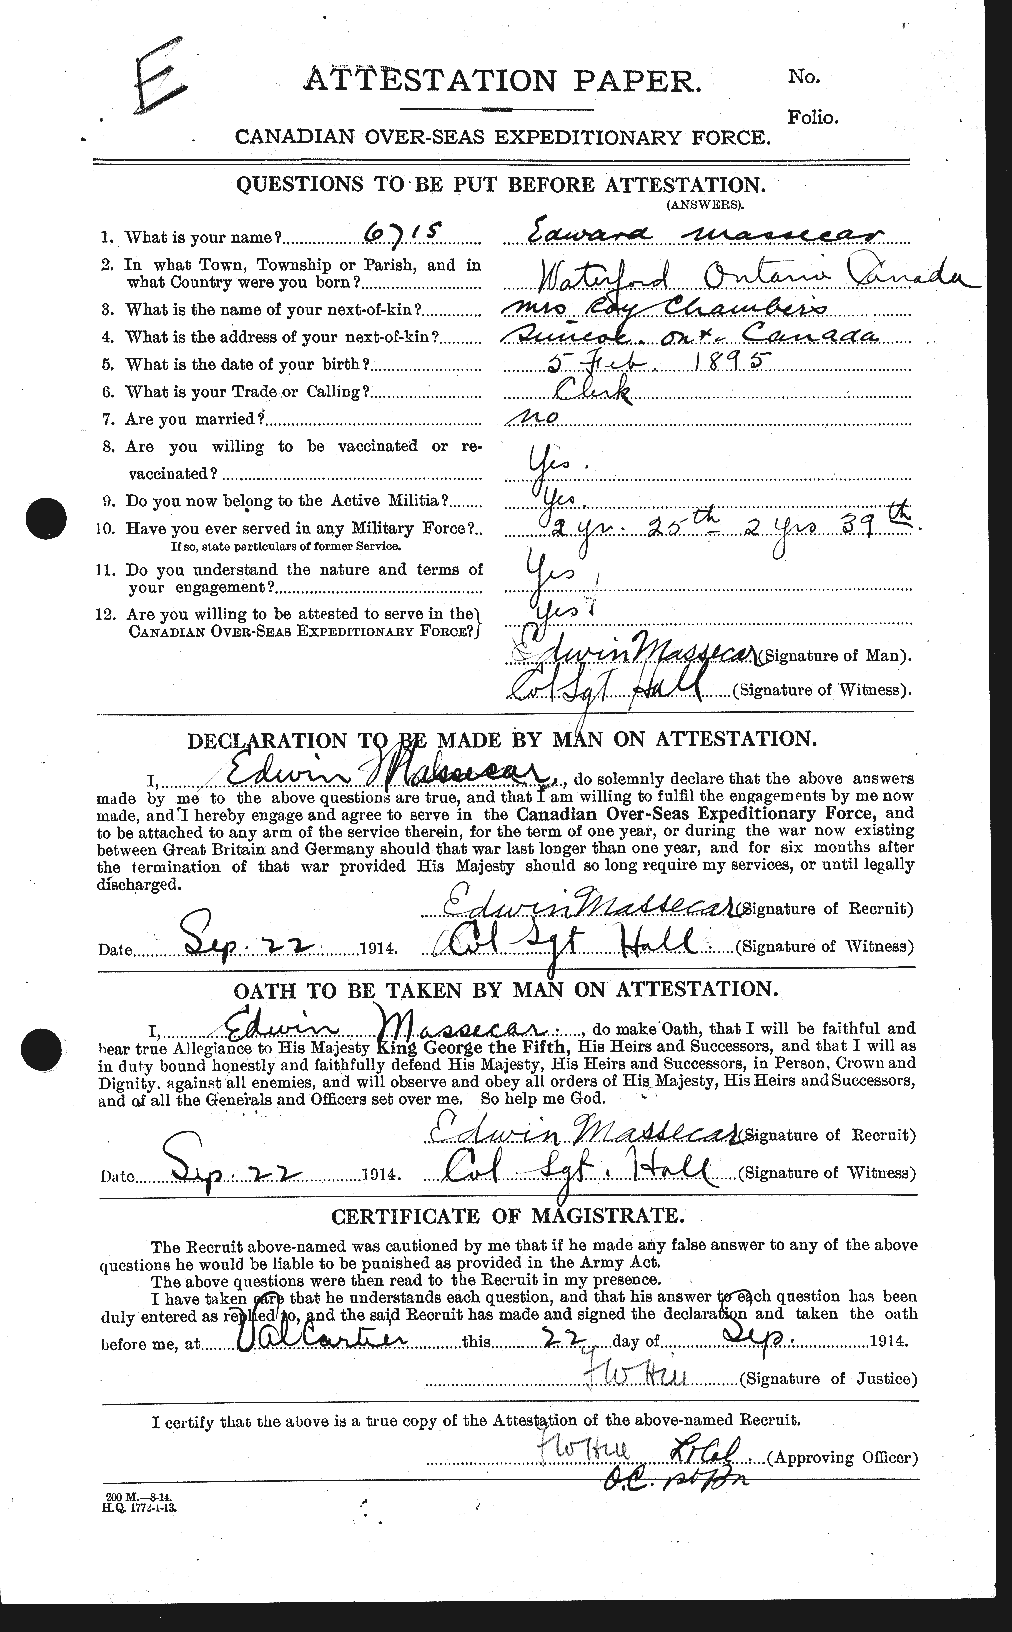 E
ATTESTATION PAPER.
No.
Folio.
CANADIAN OVER-SEAS EXPEDITIONARY FORCE.
QUESTIONS TO BE PUT BEFORE ATTESTATION.
(ANSWERS).
1. What is your name? 6715 Edward Massecar
2. In what Town, Township or Parish, and in
what Country were you born? Waterford Ontario Canada
3. What is the name of your next-of-kin? Mrs Roy Chambers
4. What is the address of your next-of-kin? Simcoe. Ont. Canada
5. What is the date of your birth? 5 Feb. 1895
6. What is your Trade or Calling? Clerk
7. Are you married? no
8. Are you willing to be vaccinated or re-
vaccinated? Yes.
9. Do you now belong to the Active Militia? Yes.
10. Have you ever served in any Military Force? 2 yr. 25th 2 yrs 39th.
If so, state particulars of former Service.
11. Do you understand the nature and terms of
your engagement? Yes
12. Are you willing to be attested to serve in the
CANADIAN OVER-SEAS EXPEDITIONARY FORCE? Yes
Edwin Massecar (Signature of Man).
Col Sgt Hall (Signature of Witness).
DECLARATION TO BE MADE BY MAN ON ATTESTATION.
I, Edwin Massecar, do solemnly declare that the above answers
made by me to the above questions are true, and that I am willing to fulfil the engagements by me now
made, and I hereby engage and agree to serve in the Canadian Over-Seas Expeditionary Force, and
to be attached to any arm of the service therein, for the term of one year, or during the war now existing
between Great Britain and Germany should that war last longer than one year, and for six months after
the termination of that war provided His Majesty should so long require my services, or until legally
discharged.
Edwin Massecar (Signature of Recruit)
Date Sep. 22 1914. Col Sgt Hall. (Signature of Witness)
OATH TO BE TAKEN BY MAN ON ATTESTATION.
I, Edwin Massecar, do make Oath, that I will be faithful and
bear true Allegiance to His Majesty King George the Fifth, His Heirs and Successors, and that I will as
in duty bound honestly and faithfully defend His Majesty, His Heirs and Successors, in Person, Crown and
Dignity, against all enemies, and will observe and obey all orders of His Majesty, His Heirs and Successors,
and of all the Generals and Officers set over me. So help me God.
Edwin Massecar (Signature of Recruit)
Date Sep. 22 1914. Col Sgt. Hall (Signature of Witness)
CERTIFICATE OF MAGISTRATE.
The Recruit above-named was cautioned by me that if he made any false answer to any of the above
questions he would be liable to be punished as provided in the Army Act.
The above questions were then read to the Recruit in my presence.
I have taken care that he understands each question, and that his answer to each question has been
duly entered as replied to, and the said Recruit has made and signed the declaration and taken the oath
before me, at Valcartier this 22 day of Sep. 1914.
F W Hill (Signature of Justice)
I certify that the above is a true copy of the Attestation of the above-named Recruit.
F W Hill Lt Col. (Approving Officer)
O.C. 1st Bn
200 M.—8-14.
H.Q. 1772-1-13.